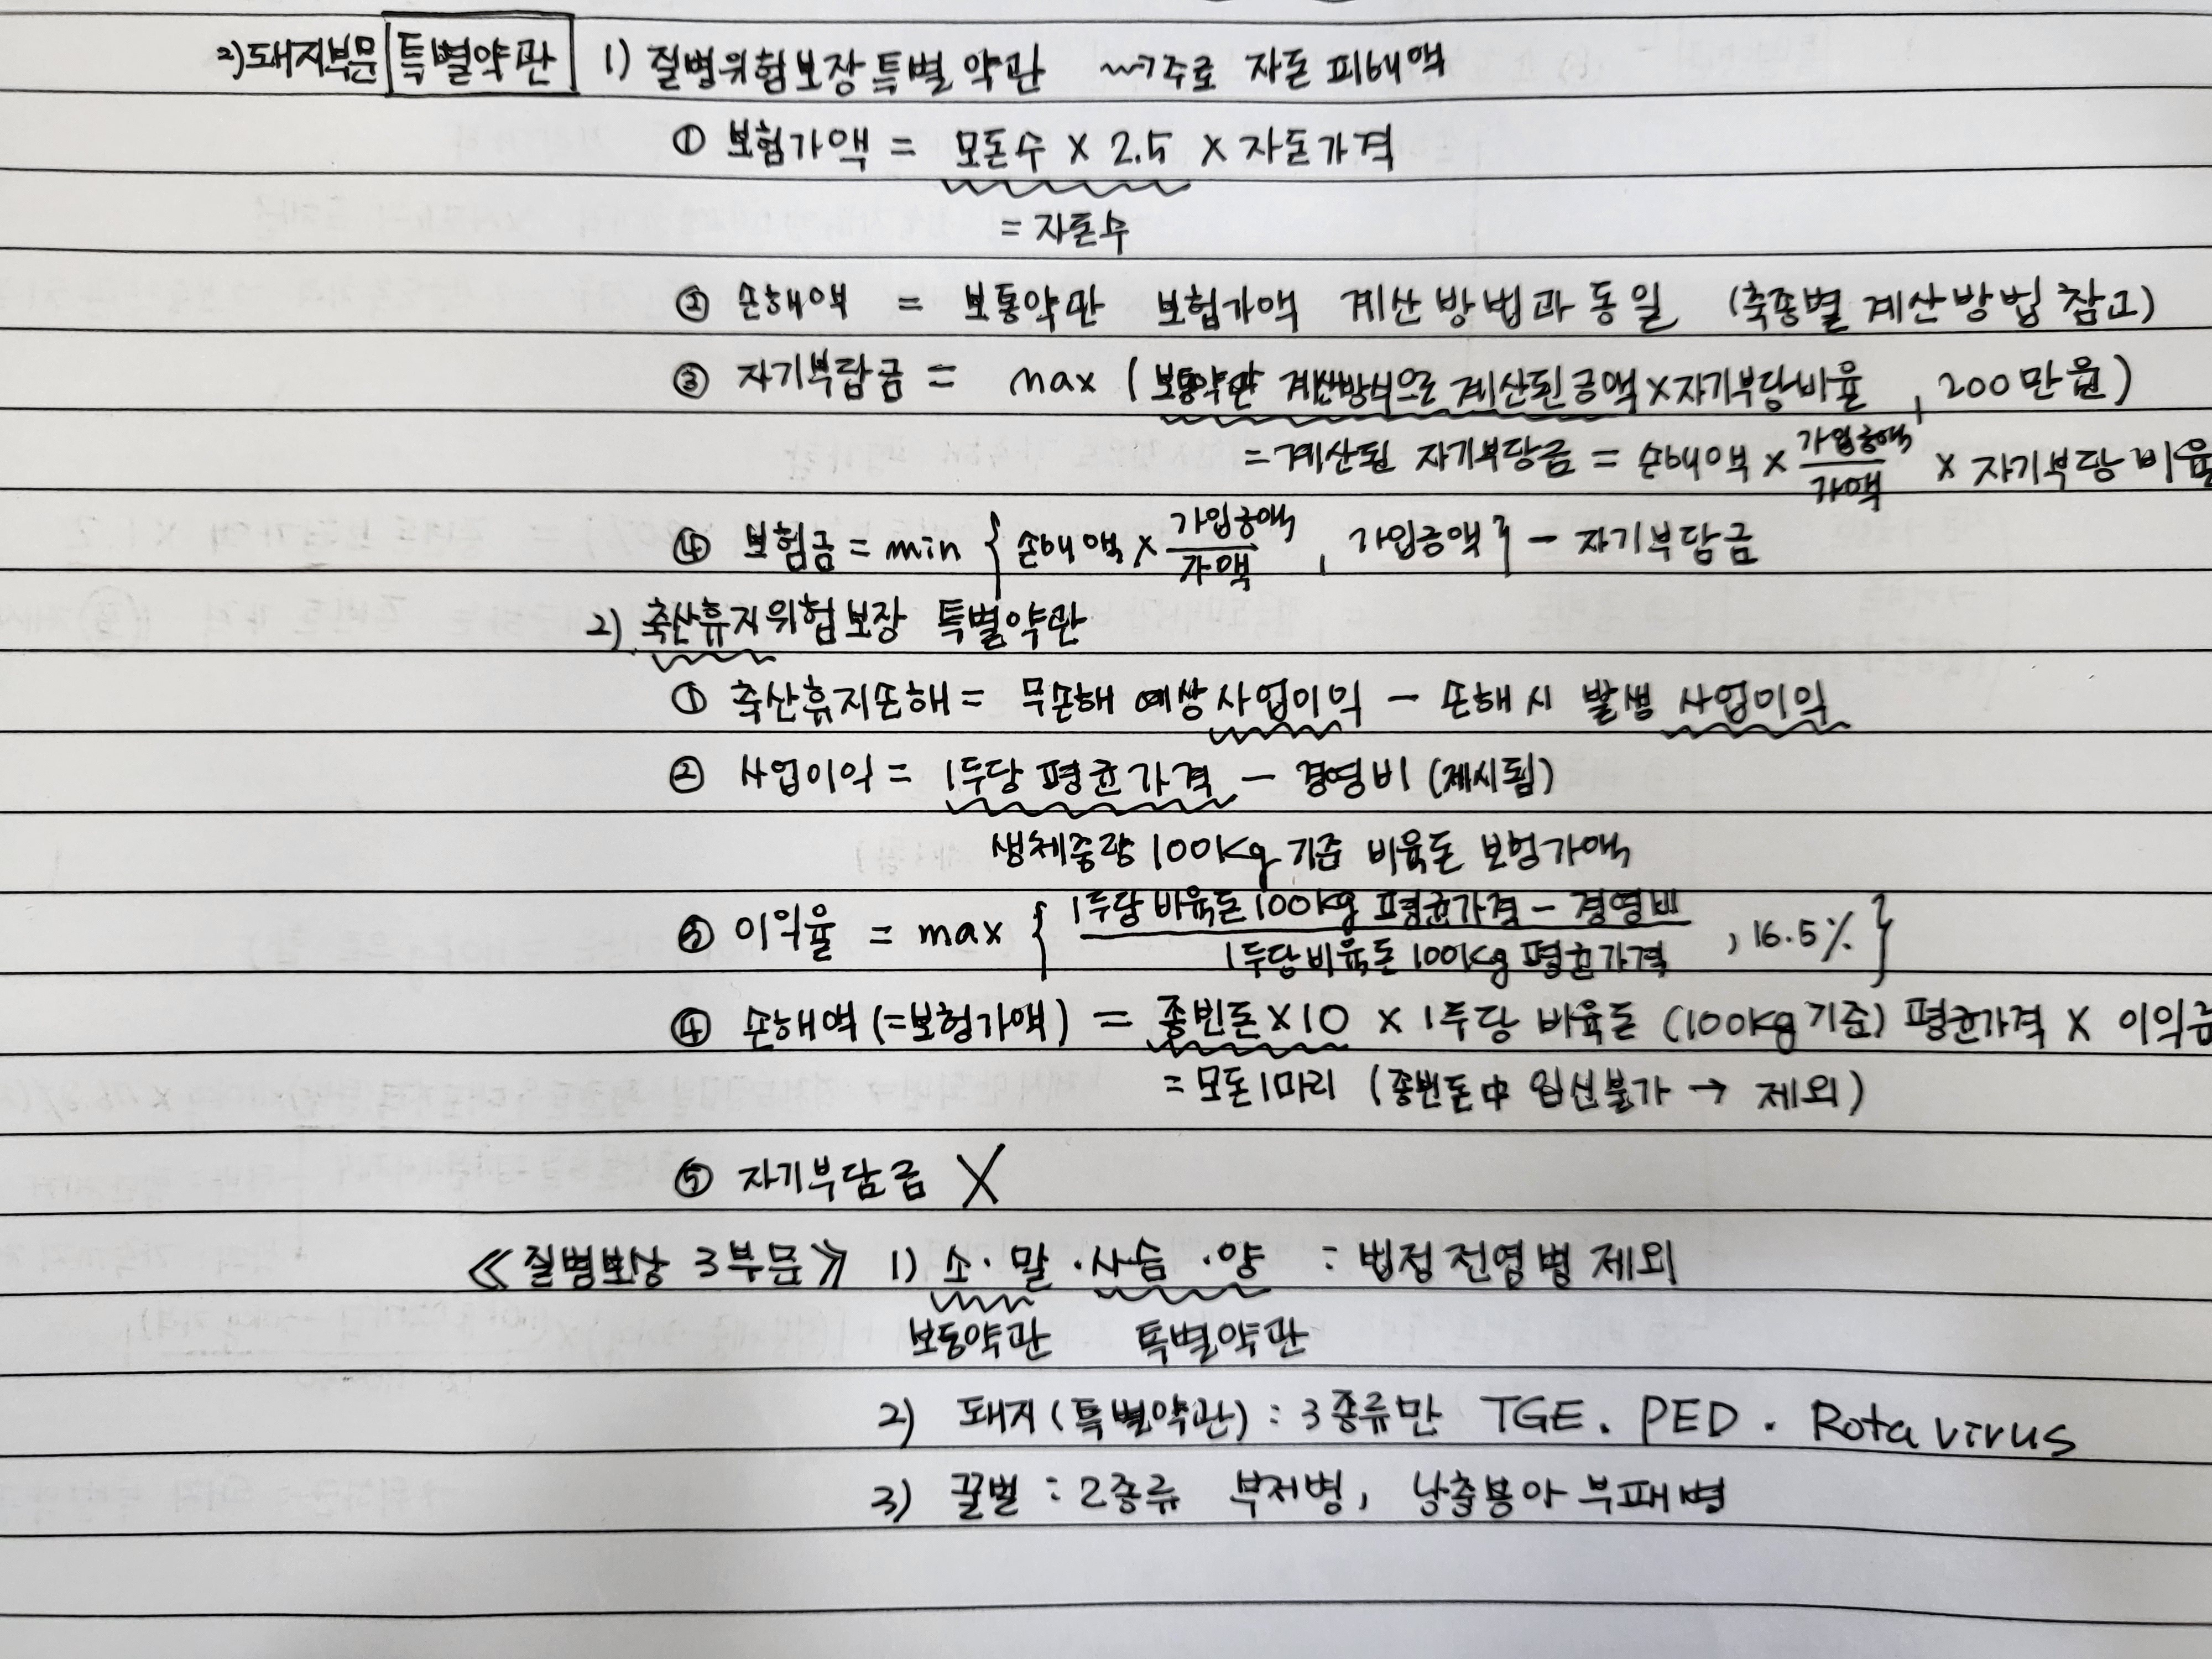 2)돼지부문 특별약관 1) 질병위험보장특별약관 → 주로 자돈피해액
① 보험가액 = 모돈수 × 2.5 × 자돈가격
= 자돈수
② 손해액 = 보통약관 보험가액 계산방법과 동일 (축종별 계산방법 참고)
③ 자기부담금 = max (보통약관 계산방식으로 계산된금액×자기부담비율, 200만원)
=계산된 자기부담금 = 손해액 × 가입금액/가액 × 자기부담비율
④ 보험금 = min { 손해액 × 가입금액/가액, 가입금액 } - 자기부담금
2) 축산휴지위험보장 특별약관
① 축산휴지손해 = 무손해 예상 사업이익 - 손해시 발생 사업이익
② 사업이익 = 1두당 평균가격 - 경영비 (제시됨)
생체중량 100kg 기준 비육돈 보험가액
③ 이익율 = max { 1두당 비육돈 100kg 평균가격 - 경영비 / 1두당 비육돈 100kg 평균가격, 16.5% }
④ 손해액(=보험가액) = 종빈돈×10 × 1두당 비육돈 (100kg 기준) 평균가격 × 이익
= 모돈1마리 (종빈돈中 임신불가 → 제외)
⑤ 자기부담금 X
≪질병보상 3부문≫ 1) 소·말·사슴·양 : 법정전염병 제외
보통약관 특별약관
2) 돼지(특별약관) : 3종류만 TGE. PED. Rota virus
3) 꿀벌 : 2종류 부저병, 낭충봉아부패병